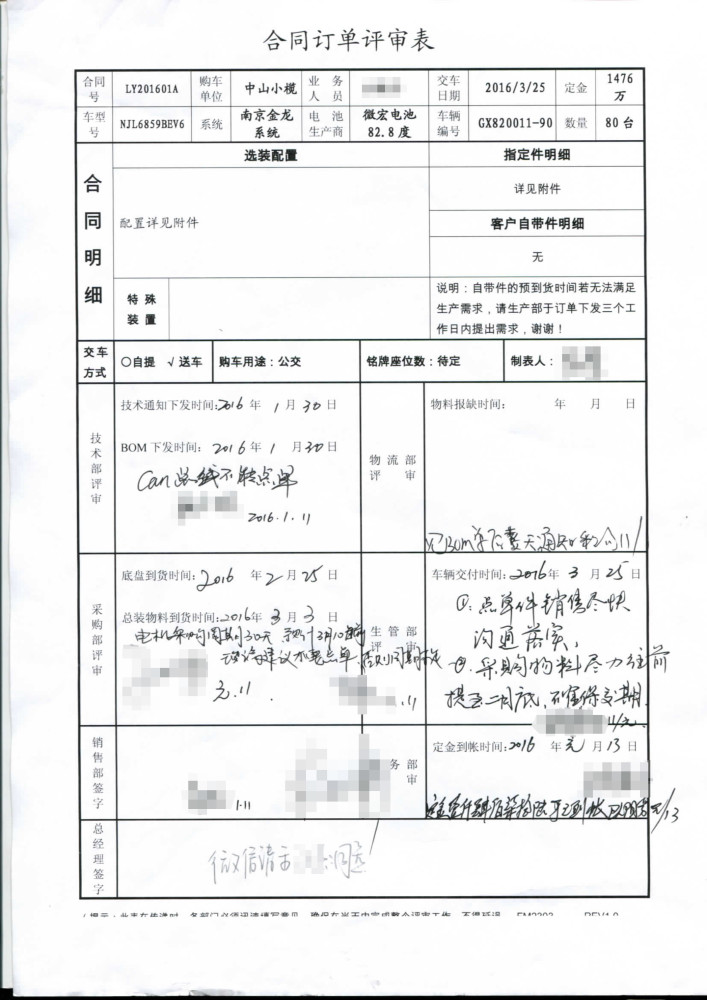 合同订单评审表
合同号 LY201601A 购车单位 中山小榄 业务人员 交车日期 2016/3/25 定金 1476万
车型号 NJL6859BEV6 系统 南京金龙系统 电池生产商 微宏电池82.8度 车辆编号 GX820011-90 数量 80台
合同明细
选装配置 指定件明细
配置详见附件 详见附件
客户自带件明细
无
特殊装置
说明：自带件的预到货时间若无法满足
生产需求，请生产部于订单下发三个工
作日内提出需求，谢谢！
交车方式 〇自提 √送车 购车用途：公交 铭牌座位数：待定 制表人：
技术部评审
技术通知下发时间：2016年1月30日
BOM下发时间：2016年1月30日
Can总线不能点单
2016.1.11
物流部评审
物料报缺时间： 年 月 日
采购部评审
底盘到货时间：2016年2月25日
总装物料到货时间：2016年3月3日
电机采购周期30天
建议不要点单
元.11
生管部评审
车辆交付时间：2016年3月25日
①：点单件销售尽快
沟通落实，
②.采购物料尽力往前
提至二月底，不能保交期.
销售部签字
1.11
务部审
定金到帐时间：2016年元月13日
总经理签字
微信请示 同意